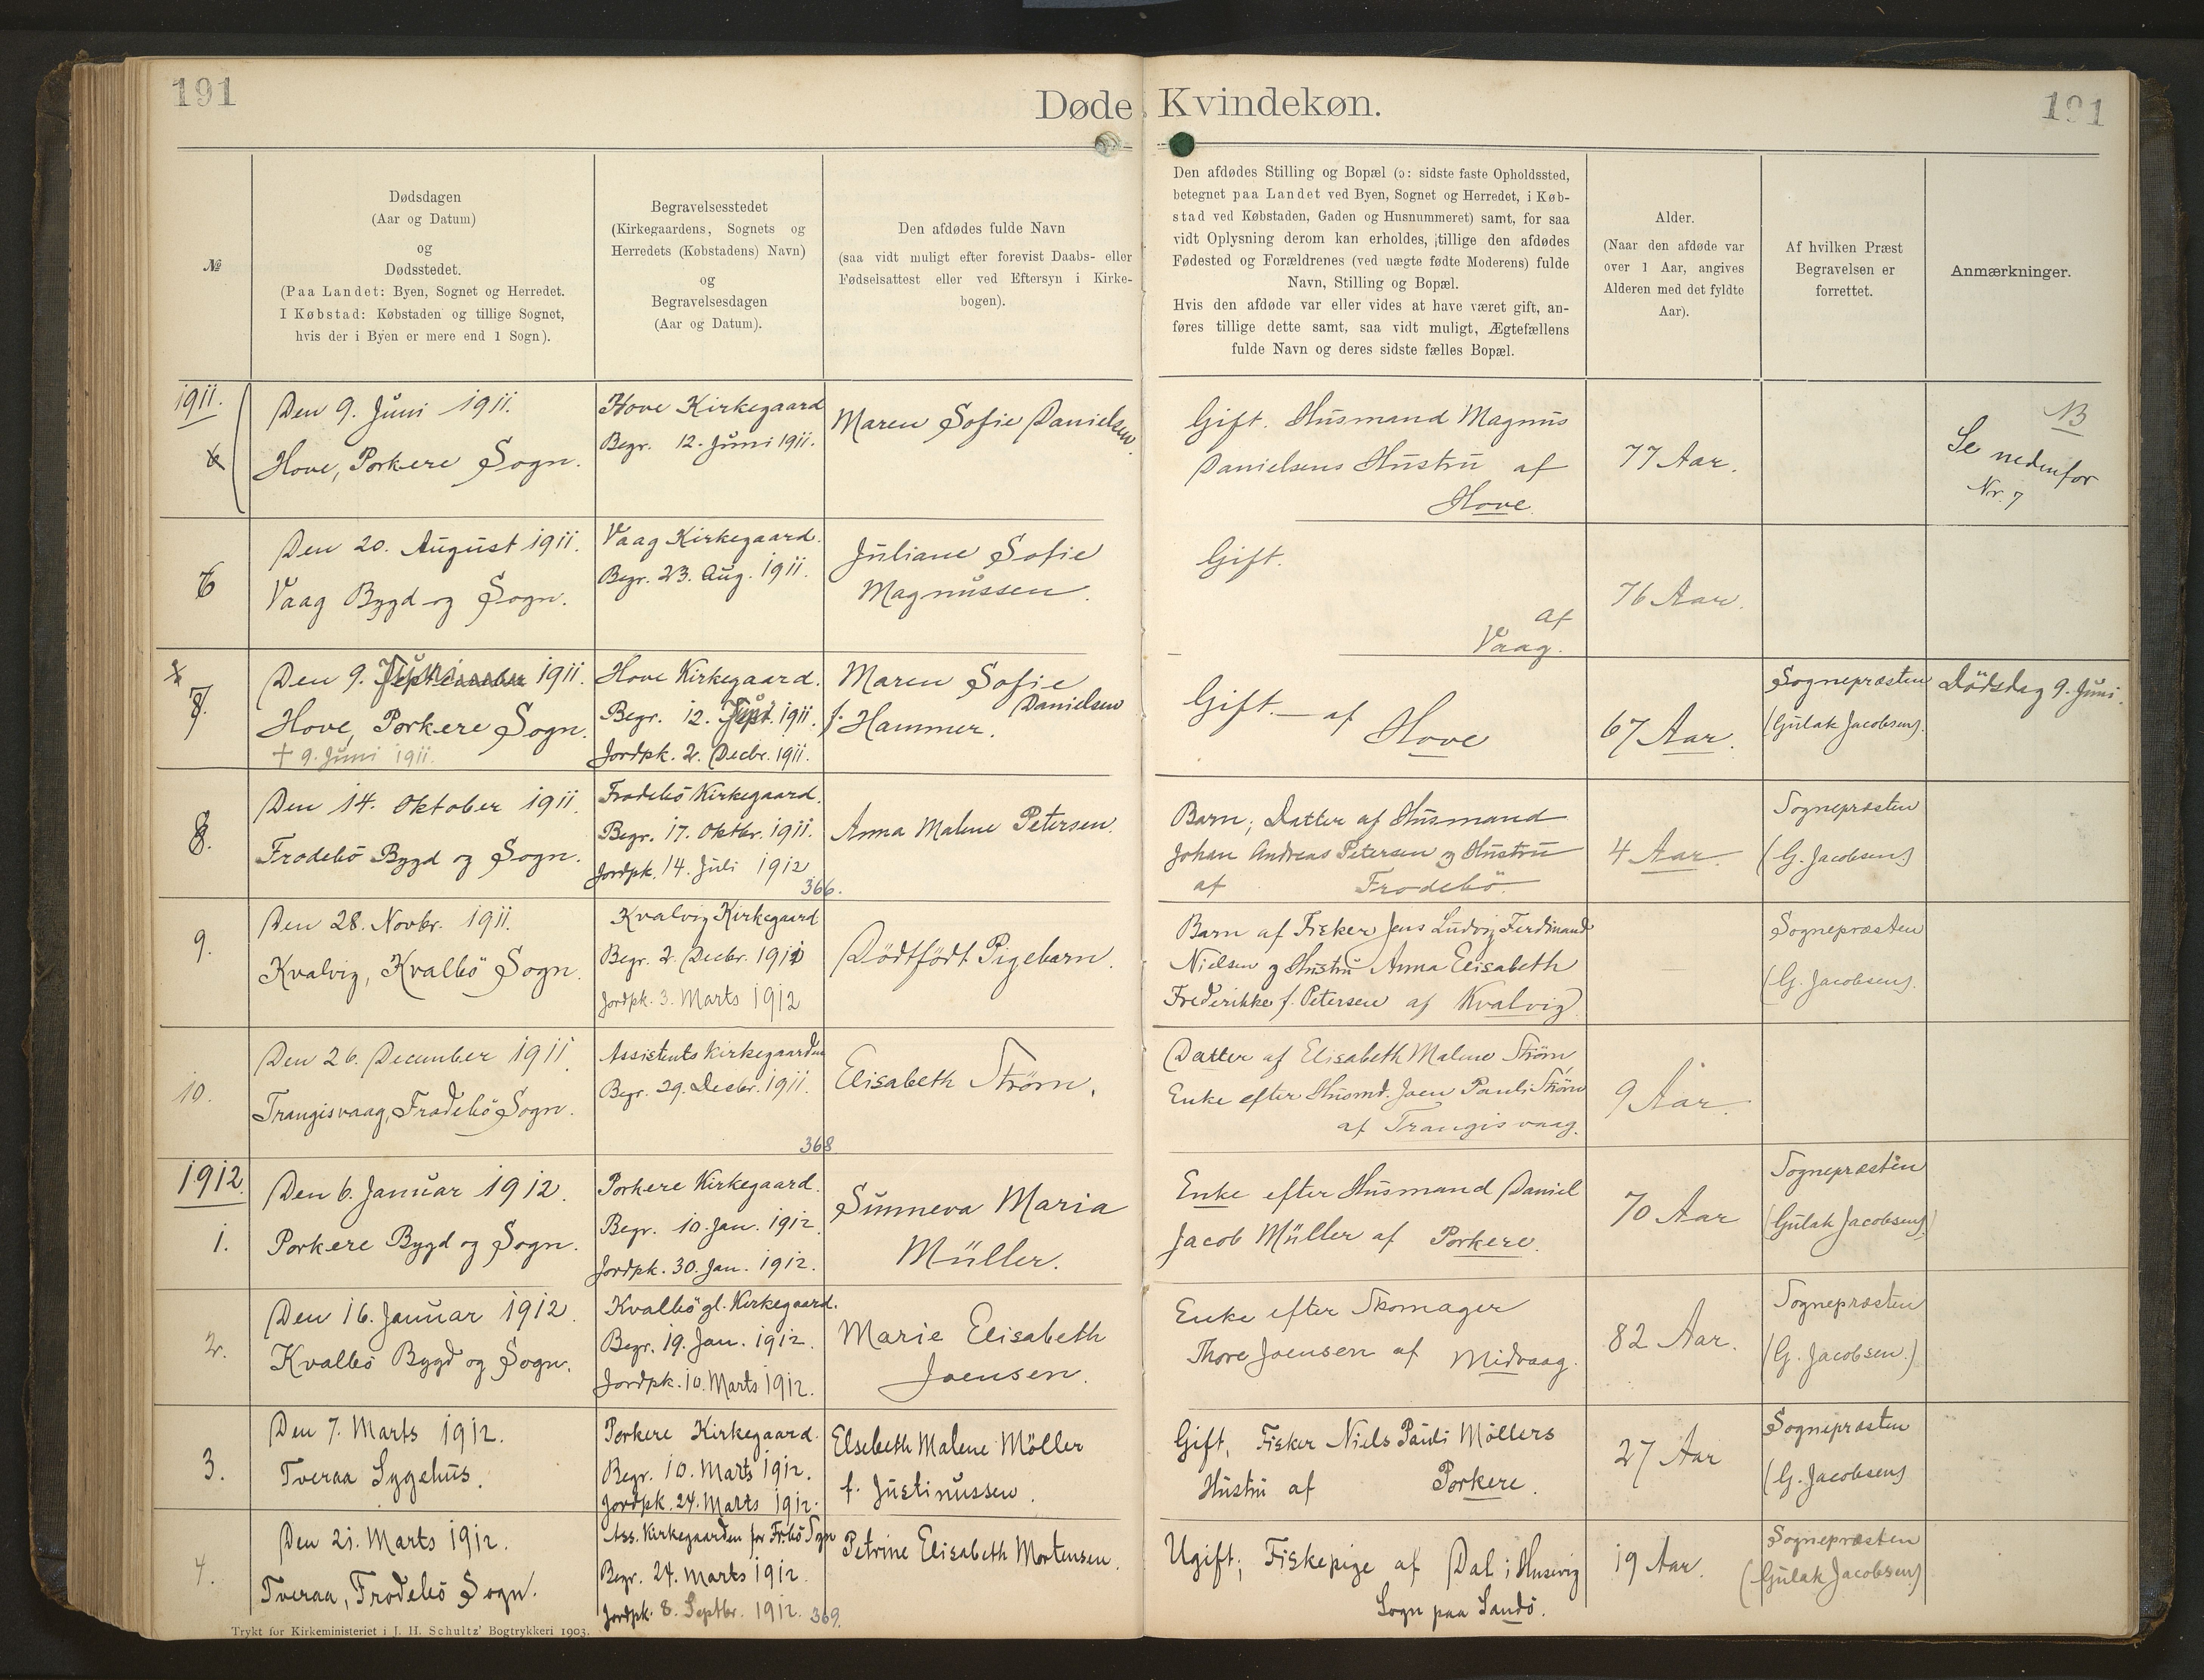 191
Døde Kvindekøn.
191
№
Dødsdagen
(Aar og Datum)
og
Dødsstedet.
(Paa Landet: Byen, Sognet og Herredet.
I Købstad: Købstaden og tillige Sognet,
hvis der i Byen er mere end 1 Sogn).
Begravelsesstedet
(Kirkegaardens, Sognets og
Herredets (Købstadens) Navn)
og
Begravelsesdagen
(Aar og Datum).
Den afdødes fulde Navn
(saa vidt muligt efter forevist Daabs- eller
Fødselsattest eller ved Eftersyn i Kirke-
bogen).
Den afdødes Stilling og Bopæl (ɔ: sidste faste Opholdssted,
betegnet paa Landet ved Byen, Sognet og Herredet, i Køb-
stad ved Købstaden, Gaden og Husnummeret) samt, for saa
vidt Oplysning derom kan erholdes, tillige den afdødes
Fødested og Forældrenes (ved uægte fødte Moderens) fulde
Navn, Stilling og Bopæl.
Hvis den afdøde var eller vides at have været gift, an-
føres tillige dette samt, saa vidt muligt, Ægtefællens
fulde Navn og deres sidste fælles Bopæl.
Alder.
(Naar den afdøde var
over 1 Aar, angives
Alderen med det fyldte
Aar).
Af hvilken Præst
Begravelsen er
forrettet.
Anmærkninger.
1911.
Den 9. Juni 1911.
Hove, Porkere Sogn.
Hove Kirkegaard
Begr. 12. Juni 1911.
Maren Sofie Danielsen
Gift. Husmand Magnus
Danielsens Hustru af
Hove
77 Aar.
NB
Se nedenfor
Nr. 7
6
Den 20. August 1911.
Vaag Bygd og Sogn.
Vaag Kirkegaard.
Begr. 23. Aug. 1911.
Juliane Sofie
Magnussen
Gift.
af
Vaag.
76 Aar.
7.
Den 9. Juni 1911.
Hove, Porkere Sogn.
† 9. Juni 1911.
Hove Kirkegaard.
Begr. 12. Juni 1911.
Jordpk. 2. Decbr. 1911.
Maren Sofie
Danielsen
f. Hammer.
Gift. – af
Hove
67 Aar.
Sognepræsten
(Gulak Jacobsen).
Dödsdag 9. Juni.
8.
Den 14. Oktober 1911.
Frodebö Bygd og Sogn.
Frodebö Kirkegaard.
Begr. 17. Oktbr. 1911.
Jordpk. 14. Juli 1912
366.
Anna Malene Petersen.
Barn; Datter af Husmand
Johan Andreas Petersen og Hustru
af Frodebö.
4 Aar.
Sognepræsten
(G. Jacobsen)
9.
Den 28. Novbr. 1911.
Kvalvig, Kvalbö Sogn.
Kvalvig Kirkegaard
Begr. 2. Decbr. 1911
Jordpk. 3. Marts 1912
Dödfödt Pigebarn.
Barn af Fisker Jens Ludvig Ferdinand
Nielsen og Hustru Anna Elisabeth
Frederikke f. Petersen af Kvalvig.
—
Sognepræsten
(G. Jacobsen).
10.
Den 26. December 1911.
Trangisvaag, Frodebö Sogn.
Assistents Kirkegaarden
Begr. 29. Decbr. 1911.
368
Elisabeth Ström.
Datter af Elisabeth Malene Ström,
Enke efter Husmd. Joen Pauli Ström
af Trangisvaag.
9 Aar.
1912.
1.
Den 6. Januar 1912.
Porkere Bygd og Sogn.
Porkere Kirkegaard.
Begr. 10. Jan. 1912.
Jordpk. 30. Jan. 1912.
Sunneva Maria
Müller.
Enke efter Husmand Daniel
Jacob Müller af Porkere.
70 Aar
Sognepræsten
(Gulak Jacobsen)
2.
Den 16. Januar 1912.
Kvalbö Bygd og Sogn.
Kvalbö gl. Kirkegaard.
Begr. 19. Jan. 1912.
Jordpk. 10. Marts 1912.
Marie Elisabeth
Joensen.
Enke efter Skomager
Thore Joensen af Midvaag.
82 Aar.
Sognepræsten
(G. Jacobsen.)
3.
Den 7. Marts 1912.
Tveraa Sygehus.
Porkere Kirkegaard.
Begr. 10. Marts 1912.
Jordpk. 24. Marts 1912.
Elsebeth Malene Möller
f. Justinussen.
Gift, Fisker Niels Pauli Möllers
Hustru af Porkere.
27 Aar
Sognepræsten
(G. Jacobsen)
4.
Den 21. Marts 1912.
Tveraa, Frodebö Sogn.
Ass. Kirkegaarden for Frbö Sogn
Begr. 24. Marts 1912.
Jordpk. 8. Septbr. 1912. 369.
Petrine Elisabeth Mortensen.
Ugift; Fiskepige af Dal i Husevig
Sogn paa Sandö.
19 Aar.
Sognepræsten
(Gulak Jacobsen)
Trykt for Kirkeministeriet i J. H. Schultz' Bogtrykkeri 1903.